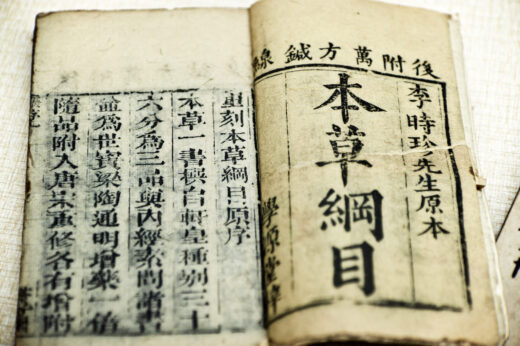 後附萬方鍼線
李時珍先生原本
本草綱目
重刻本草綱目原序
本草一書模自軒皇種別三十
六分為三品與內經素問諸書
並為世寶梁陶通明增藥一倍
隨品附入唐宋重修各有增附